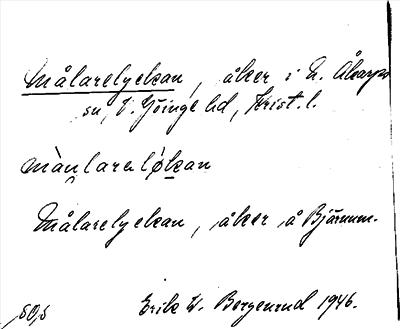 Målarelyckan, åker i N. Åkarps
sn, V. Göinge hd, Krist. l.
målarelyckan
Målarelyckan, åker å Bjärnum.
Erik W. Bergenrud 1946.